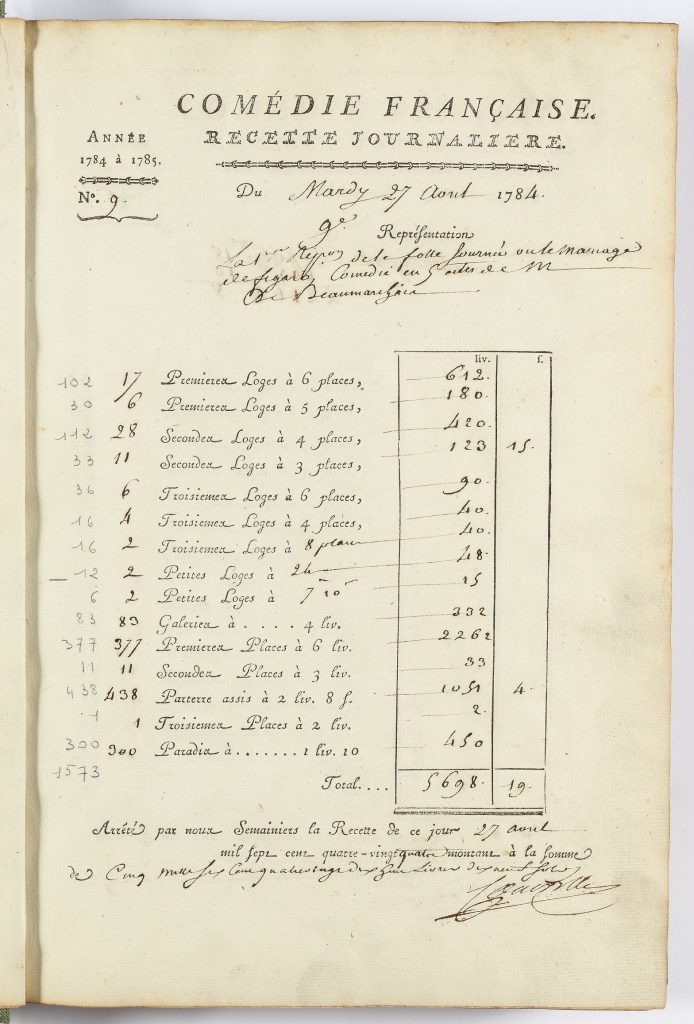 COMÉDIE FRANÇAISE.
RECETTE JOURNALIERE.
ANNÉE
1784 à 1785.
N.º 9.
Du Mardy 27 Avril 1784.
9e Représentation
La 1ere Repon de la folle Journée ou le mariage
de figaro, Comedie en 5 actes de M
De Beaumarchais
liv. f.
102 17 Premieres Loges à 6 places, 612.
30 6 Premieres Loges à 5 places, 180.
112 28 Secondes Loges à 4 places, 420.
33 11 Secondes Loges à 3 places, 123 15.
36 6 Troisiemes Loges à 6 places, 90.
16 4 Troisiemes Loges à 4 places, 40.
16 2 Troisiemes Loges à 8 places 40.
12 2 Petites Loges à 24 48.
6 2 Petites Loges à 7 10 15
83 83 Galeries à . . . . . 4 liv. 332
377 377 Premieres Places à 6 liv. 2262
11 11 Secondes Places à 3 liv. 33
438 438 Parterre assis à 2 liv. 8 s. 1051 4.
1 1 Troisiemes Places à 2 liv. 2.
300 300 Paradis à . . . . . . . 1 liv. 10 450
1573
Total. . . . 5698. 19.
Arrêté par nous Semainiers la Recette de ce jour 27 avril
mil sept cent quatre-vingt quatre montant à la somme
de Cinq mille six Cent quatrevingt dix huit Livres dix neuf sols